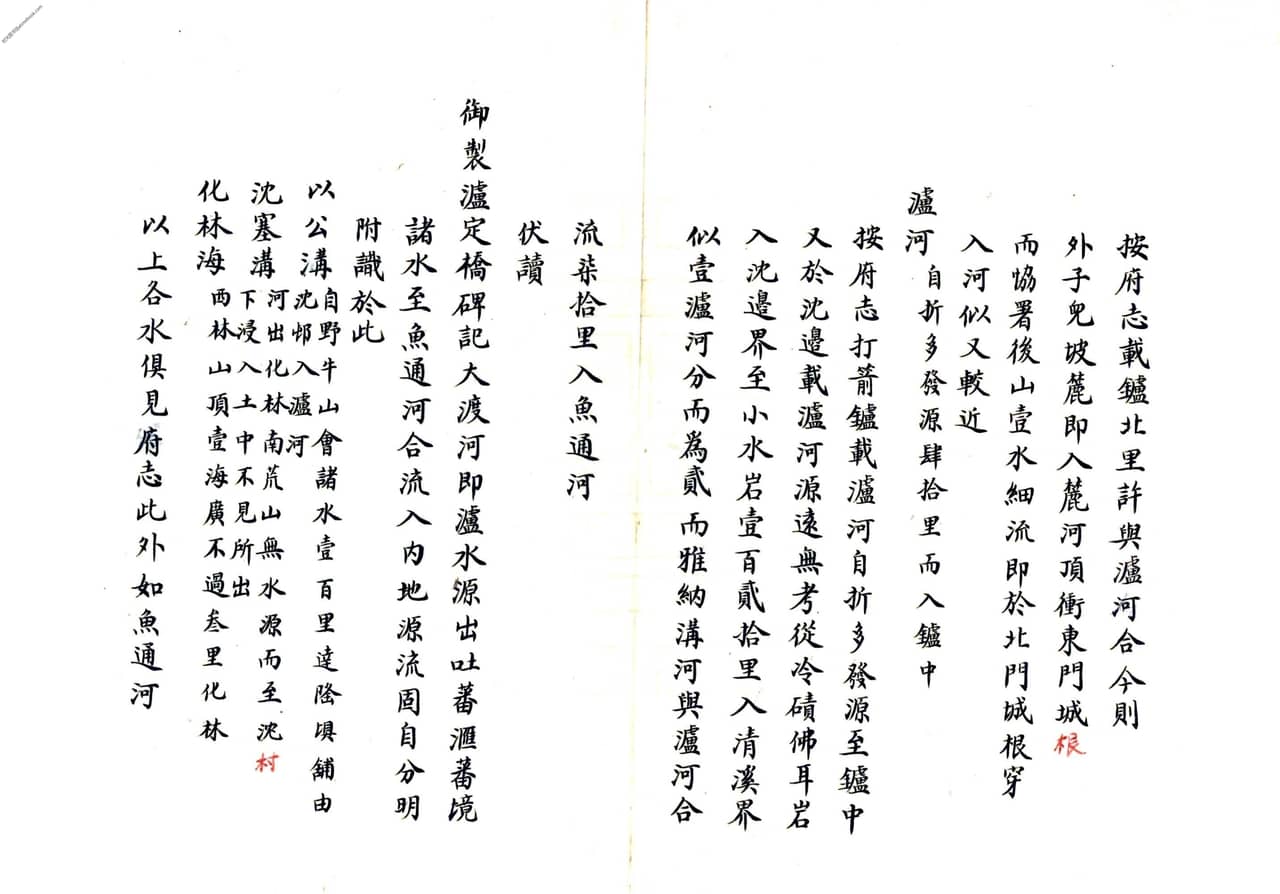 按府志載鑪北里許與瀘河合今則
外子兒坡麓即入麓河頂衝東門城根
而協署後山壹水細流即於北門城根穿
入河似又較近
瀘河自折多發源肆拾里而入鑪中
按府志打箭鑪載瀘河自折多發源至鑪中
又於沈邊載瀘河源遠無考從冷磧佛耳岩
入沈邊界至小水岩壹百貳拾里入清溪界
似壹瀘河分而為貳而雅納溝河與瀘河合
流柒拾里入魚通河
伏讀
御製瀘定橋碑記大渡河即瀘水源出吐蕃滙蕃境
諸水至魚通河合流入內地源流固自分明
附識於此
以公溝自野牛山會諸水壹百里達隆埧舖由
沈邨入瀘河
沈塞溝河出化林南荒山無水源而至沈村
下浸入土中不見所出
化林海西林山頂壹海廣不過叁里化林
以上各水俱見府志此外如魚通河